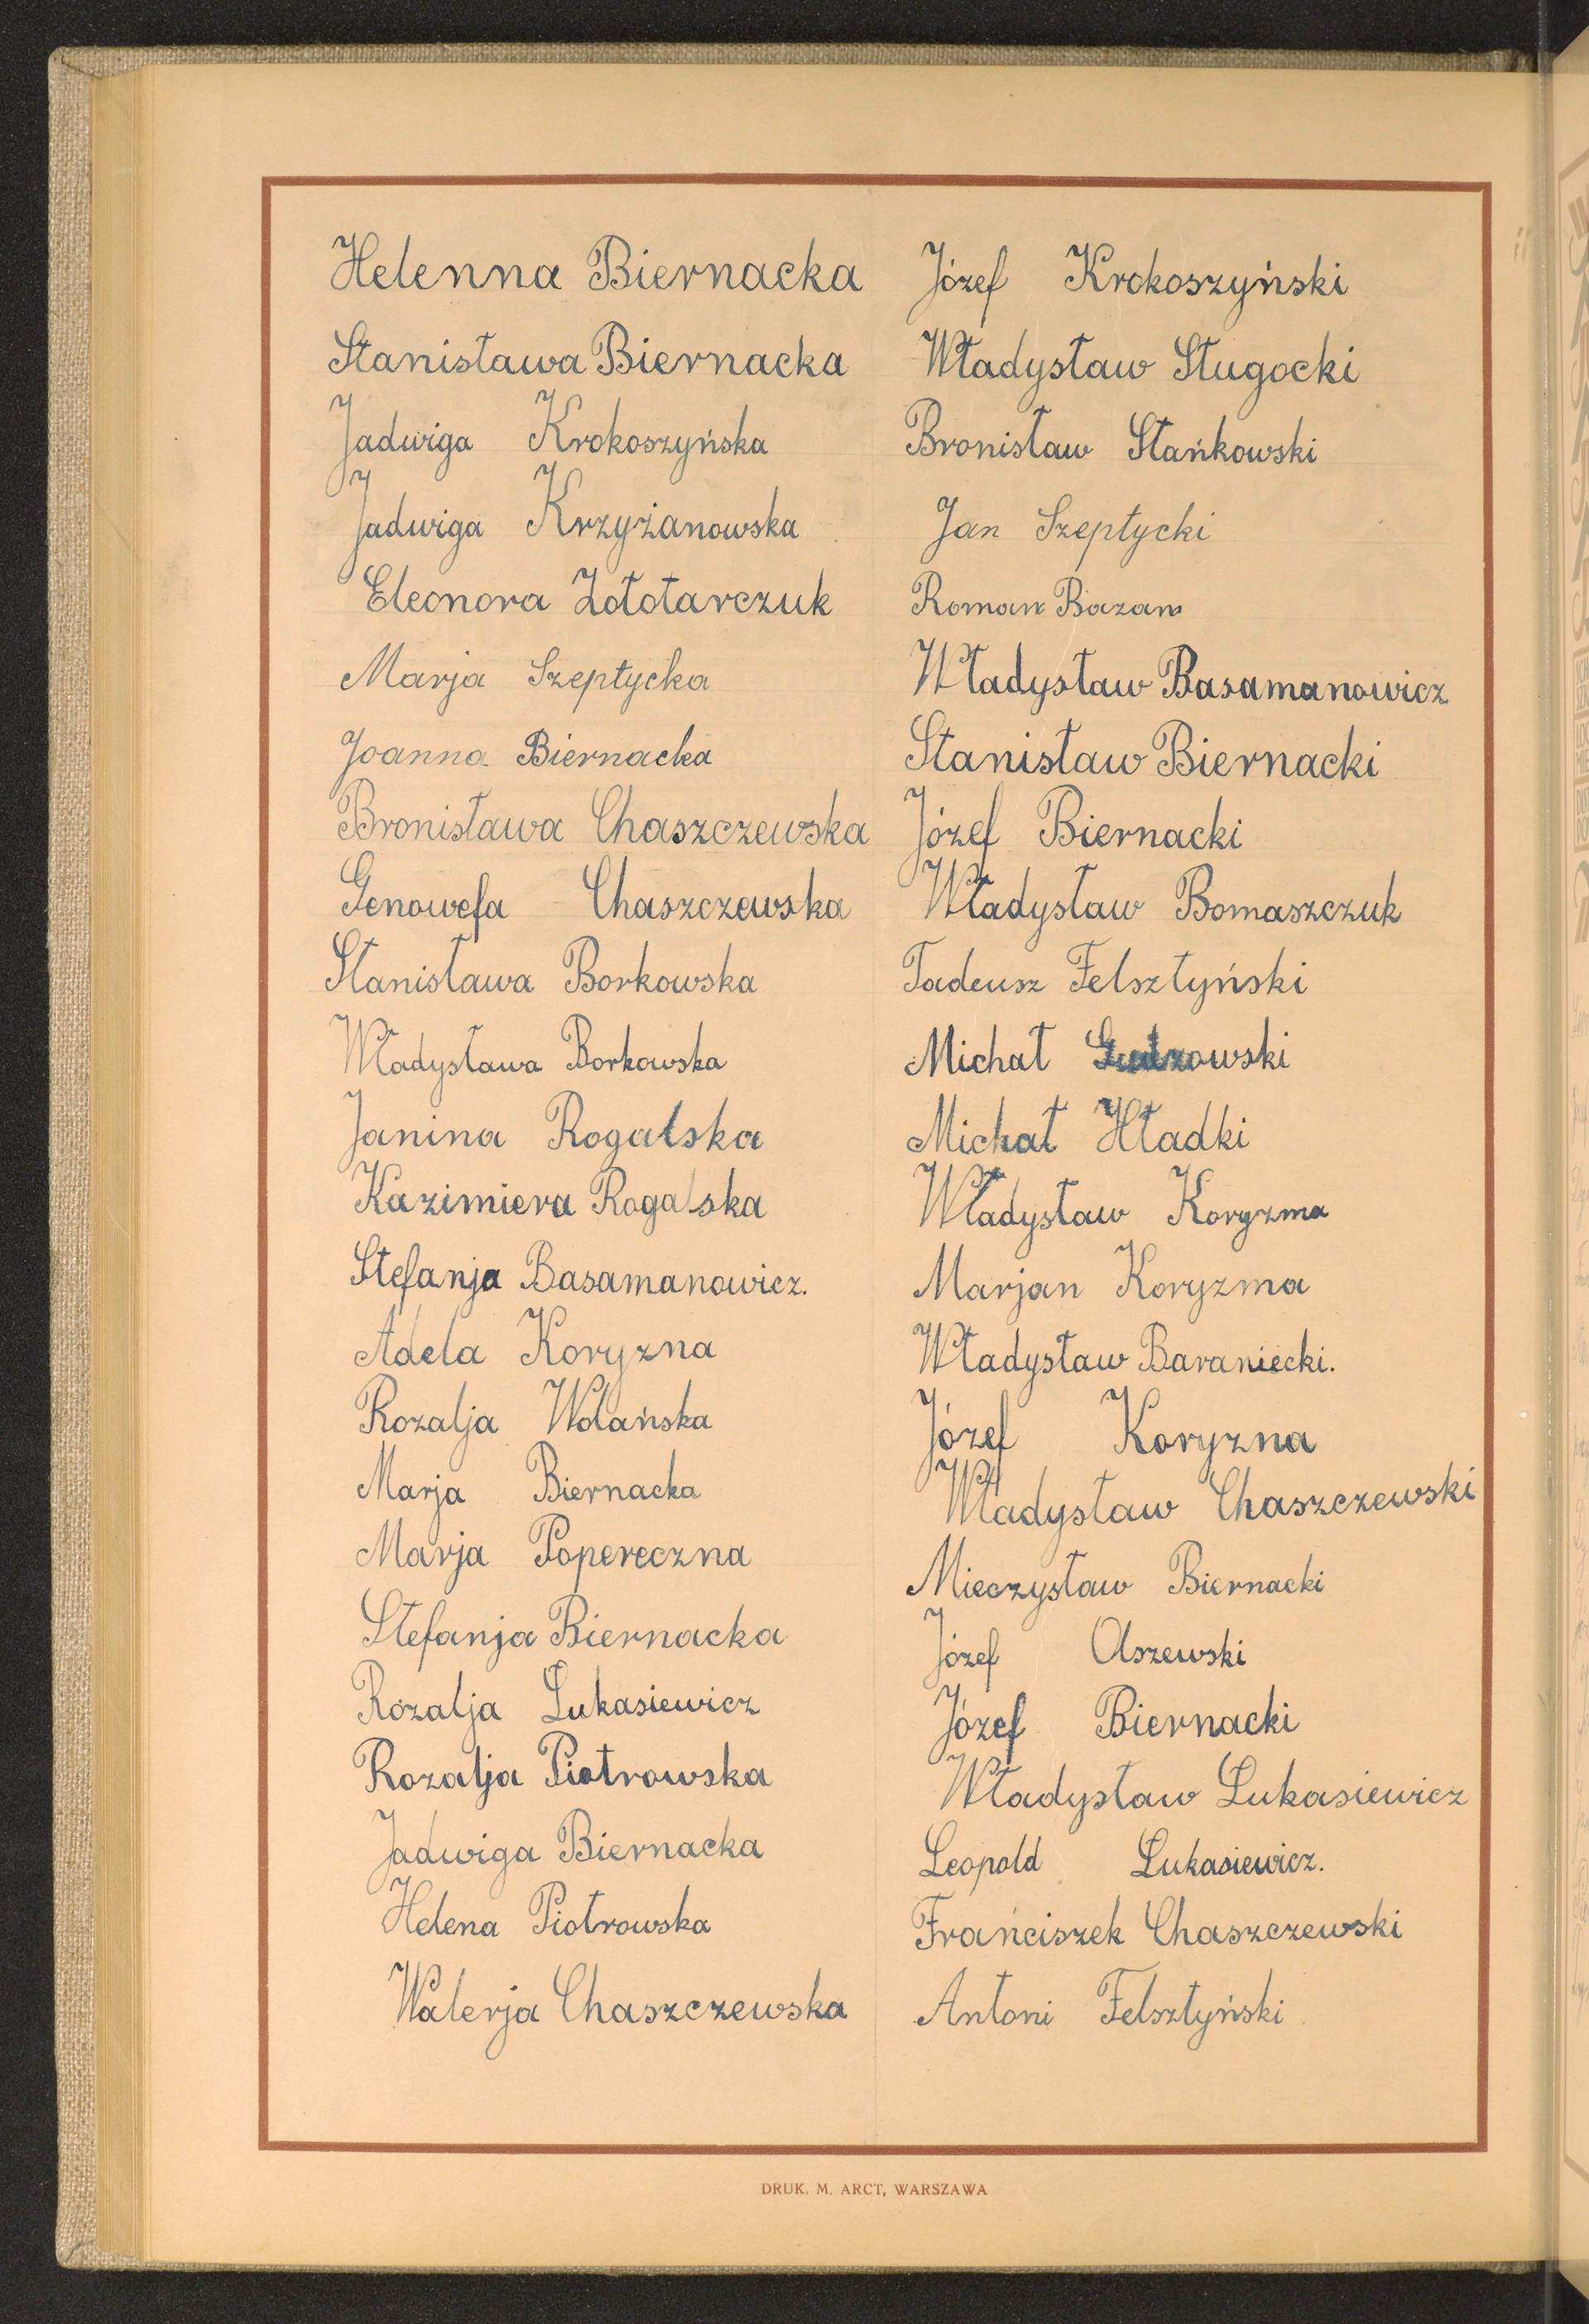 Helenna Biernacka
Stanisława Biernacka
Jadwiga Krokoszyńska
Jadwiga Krzyżanowska
Eleonora Zołotarczuk
Marja Szeptycka
Joanna Biernacka
Bronisława Chaszczewska
Genowefa Chaszczewska
Stanisława Borkowska
Władysława Borkowska
Janina Rogalska
Kazimiera Rogalska
Stefanja Basamanowicz.
Adela Koryzna
Rozalja Wolańska
Marja Biernacka
Marja Popereczna
Stefanja Biernacka
Rozalja Łukasiewicz
Rozalja Piotrowska
Jadwiga Biernacka
Helena Piotrowska
Walerja Chaszczewska
Józef Krokoszyński
Władysław Sługocki
Bronisław Stańkowski
Jan Szeptycki
Roman Bazan
Władysław Basamanowicz
Stanisław Biernacki
Józef Biernacki
Władysław Bomaszczuk
Tadeusz Felsztyński
Michał Gudzowski
Michał Hładki
Władysław Koryzma
Marjan Koryzma
Władysław Baraniecki.
Józef Koryzna
Władysław Chaszczewski
Mieczysław Biernacki
Józef Olszewski
Józef Biernacki
Władysław Łukasiewicz
Leopold Łukasiewicz.
Frańciszek Chaszczewski
Antoni Felsztyński
DRUK. M. ARCT, WARSZAWA